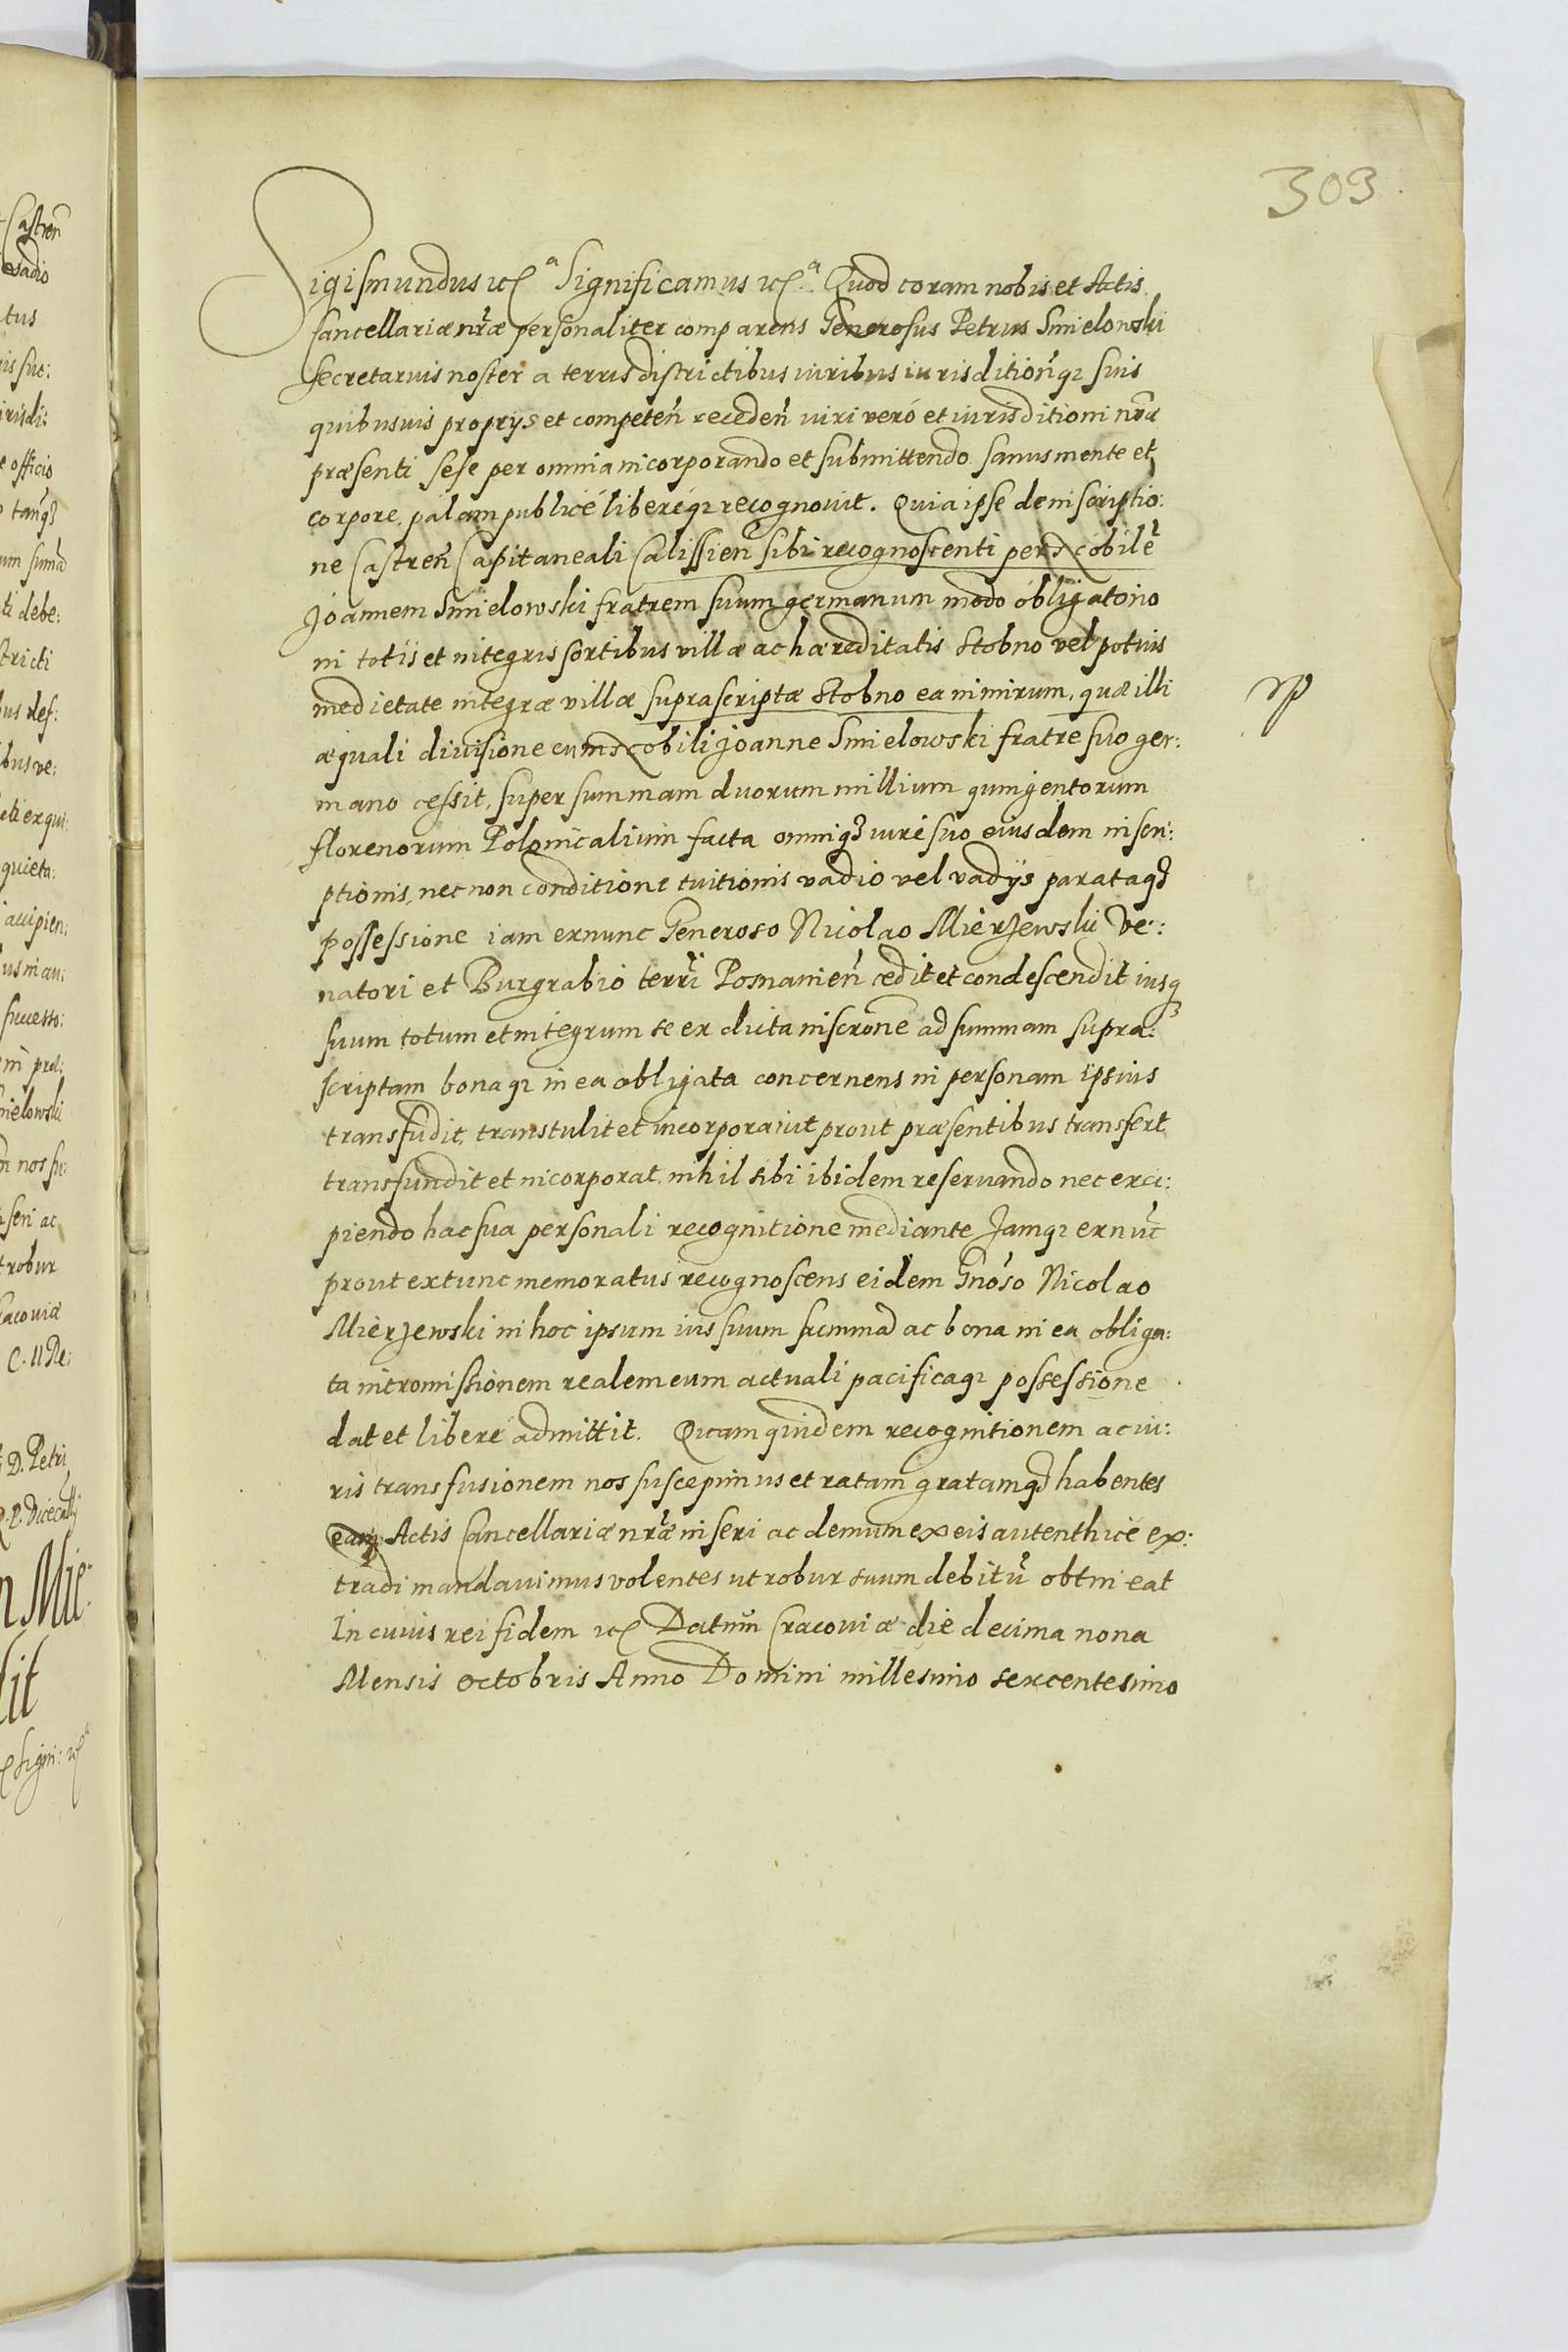 303
Sigismundus etc a Significamus etc a. Quod coram nobis et Actis
Cancellariæ nr̃æ personaliter comparens Generosus Petrus Smielowski
secretarius noster a terris districtibus iuribus iurisditioñq; suis
quibusuis proprijs et competeñ recedeñ iuri veró et iurisditioni nr̃æ
præsenti sese per omnia incorporando et submittendo sanus mente et
corpore, palam publicé liberéq; recognouit. Quia ipse de inscriptio:
ne Castreñ Capitaneali Calissieñ sibi recognoscenti per Nobilẽ
Joannem Smielowski fratrem suum germanum modo obligatorio
in totis et integris sortibus villæ ac hæreditatis Stobno vel potius
medietate integræ villæ suprascriptæ Stobno ea nimirum, quæ illi
æquali diuisione cum Nobili Joanne Smielowski fratre suo ger:
mano cessit, super summam duorum millium quingentorum
florenorum Polonicalium facta omniq; iuré suo eiusdem inscri:
ptionis, nec non conditione tuitionis vadio vel vadijs parataq;
possessione iam exnunc Generoso Nicolao Mierzewski Ve:
natori et Burgrabio terrĩ Posnanieñ cedit et condescendit iusq;
suum totum et integrum se ex dicta inscr̃one ad summam supra:
scriptam bonaq; in ea obligata concernens in personam ipsius
transfudit, transtulit et incorporauit prout præsentibus transfert
transfundit et incorporat, nihil sibi ibidem reseruando nec exci:
piendo hac sua personali recognitione mediante Jamq; exnũc
prout extunc memoratus recognoscens eidem Gnõso Nicolao
Mierzewski in hoc ipsum ius suum summã ac bona in ea obliga:
ta intromissionem realem eum actuali pacificaq; possessione
dat et liberé admittit. Quam quidem recognitionem ac iu:
ris transfusionem nos suscepimus et ratam gratamq; habentes
eam Actis Cancellariæ nr̃æ inseri ac demum ex eis autenthicé ex:
tradi mandauimus volentes ut robur suum debitũ obtineat
In cuius rei fidem etc Datum Cracouiæ die decima nona
Mensis Octobris Anno Domini millesimo sexcentesimo